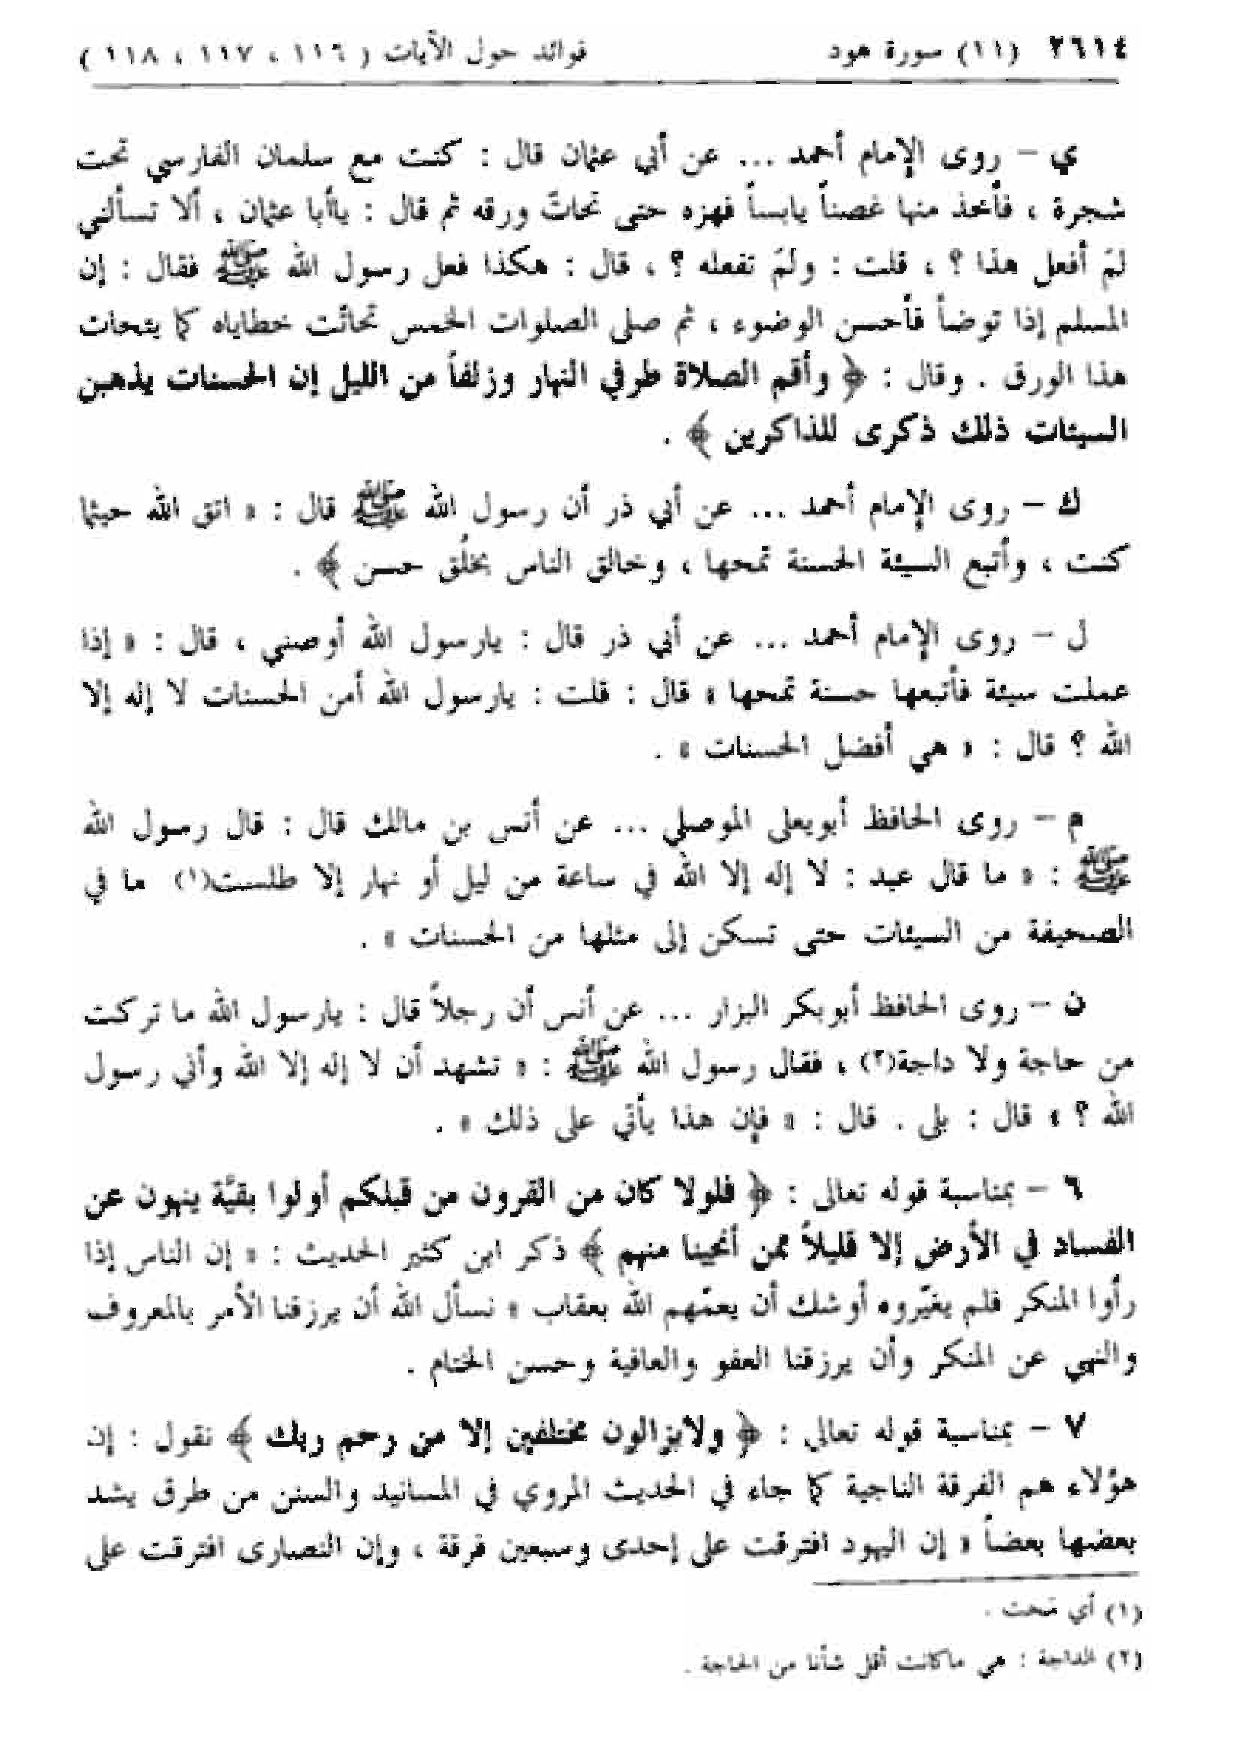 ٢٦١٤ (١١) سورة هود فوائد حول الآيات ( ١١٦ ، ١١٧ ، ١١٨ )
ي – روى الإمام أحمد ... عن أبي عثمان قال : كنت مع سلمان الفارسي تحت
شجرة ، فأخذ منها غصناً يابساً فهزه حتى تحاتّ ورقه ثم قال : ياأبا عثمان ، ألا تسألني
لمَ أفعل هذا ؟ ، قلت : ولمَ تفعله ؟ ، قال : هكذا فعل رسول الله ﷺ فقال : إن
المسلم إذا توضأ فأحسن الوضوء ، ثم صلى الصلوات الخمس تحاتّت خطاياه كما يتحات
هذا الورق . وقال : ﴿ وأقم الصلاة طرفي النهار وزلفاً من الليل إن الحسنات يذهبن
السيئات ذلك ذكرى للذاكرين ﴾ .
ك – روى الإمام أحمد ... عن أبي ذر أن رسول الله ﷺ قال : « اتق الله حيثما
كنت ، وأتبع السيئة الحسنة تمحها ، وخالق الناس بخلُق حسن ﴾ .
ل – روى الإمام أحمد ... عن أبي ذر قال : يارسول الله أوصني ، قال : « إذا
عملت سيئة فأتبعها حسنة تمحها » قال : قلت : يارسول الله أمن الحسنات لا إله إلا
الله ؟ قال : « هي أفضل الحسنات » .
م – روى الحافظ أبويعلى الموصلي ... عن أنس بن مالك قال : قال رسول الله
ﷺ : « ما قال عبد : لا إله إلا الله في ساعة من ليل أو نهار إلا طلست(١) ما في
الصحيفة من السيئات حتى تسكن إلى مثلها من الحسنات » .
ن – روى الحافظ أبوبكر البزار ... عن أنس أن رجلاً قال : يارسول الله ما تركت
من حاجة ولا داجة(٢) ، فقال رسول الله ﷺ : « تشهد أن لا إله إلا الله وأني رسول
الله ؟ » قال : بلى . قال : « فإن هذا يأتي على ذلك » .
٦ – بمناسبة قوله تعالى : ﴿ فلولا كان من القرون من قبلكم أولوا بقيَّة ينهون عن
الفساد في الأرض إلا قليلاً ممن أنجينا منهم ﴾ ذكر ابن كثير الحديث : « إن الناس إذا
رأوا المنكر فلم يغيّروه أوشك أن يعمّهم الله بعقاب » نسأل الله أن يرزقنا الأمر بالمعروف
والنهي عن المنكر وأن يرزقنا العفو والعافية وحسن الختام .
٧ – بمناسبة قوله تعالى : ﴿ ولايزالون مختلفين إلا من رحم ربك ﴾ نقول : إن
هؤلاء هم الفرقة الناجية كما جاء في الحديث المروي في المسانيد والسنن من طرق يشد
بعضها بعضاً « إن اليهود افترقت على إحدى وسبعين فرقة ، وإن النصارى افترقت على
(١) أي محت .
(٢) الداجة : هي ماكانت أقل شأنا من الحاجة .